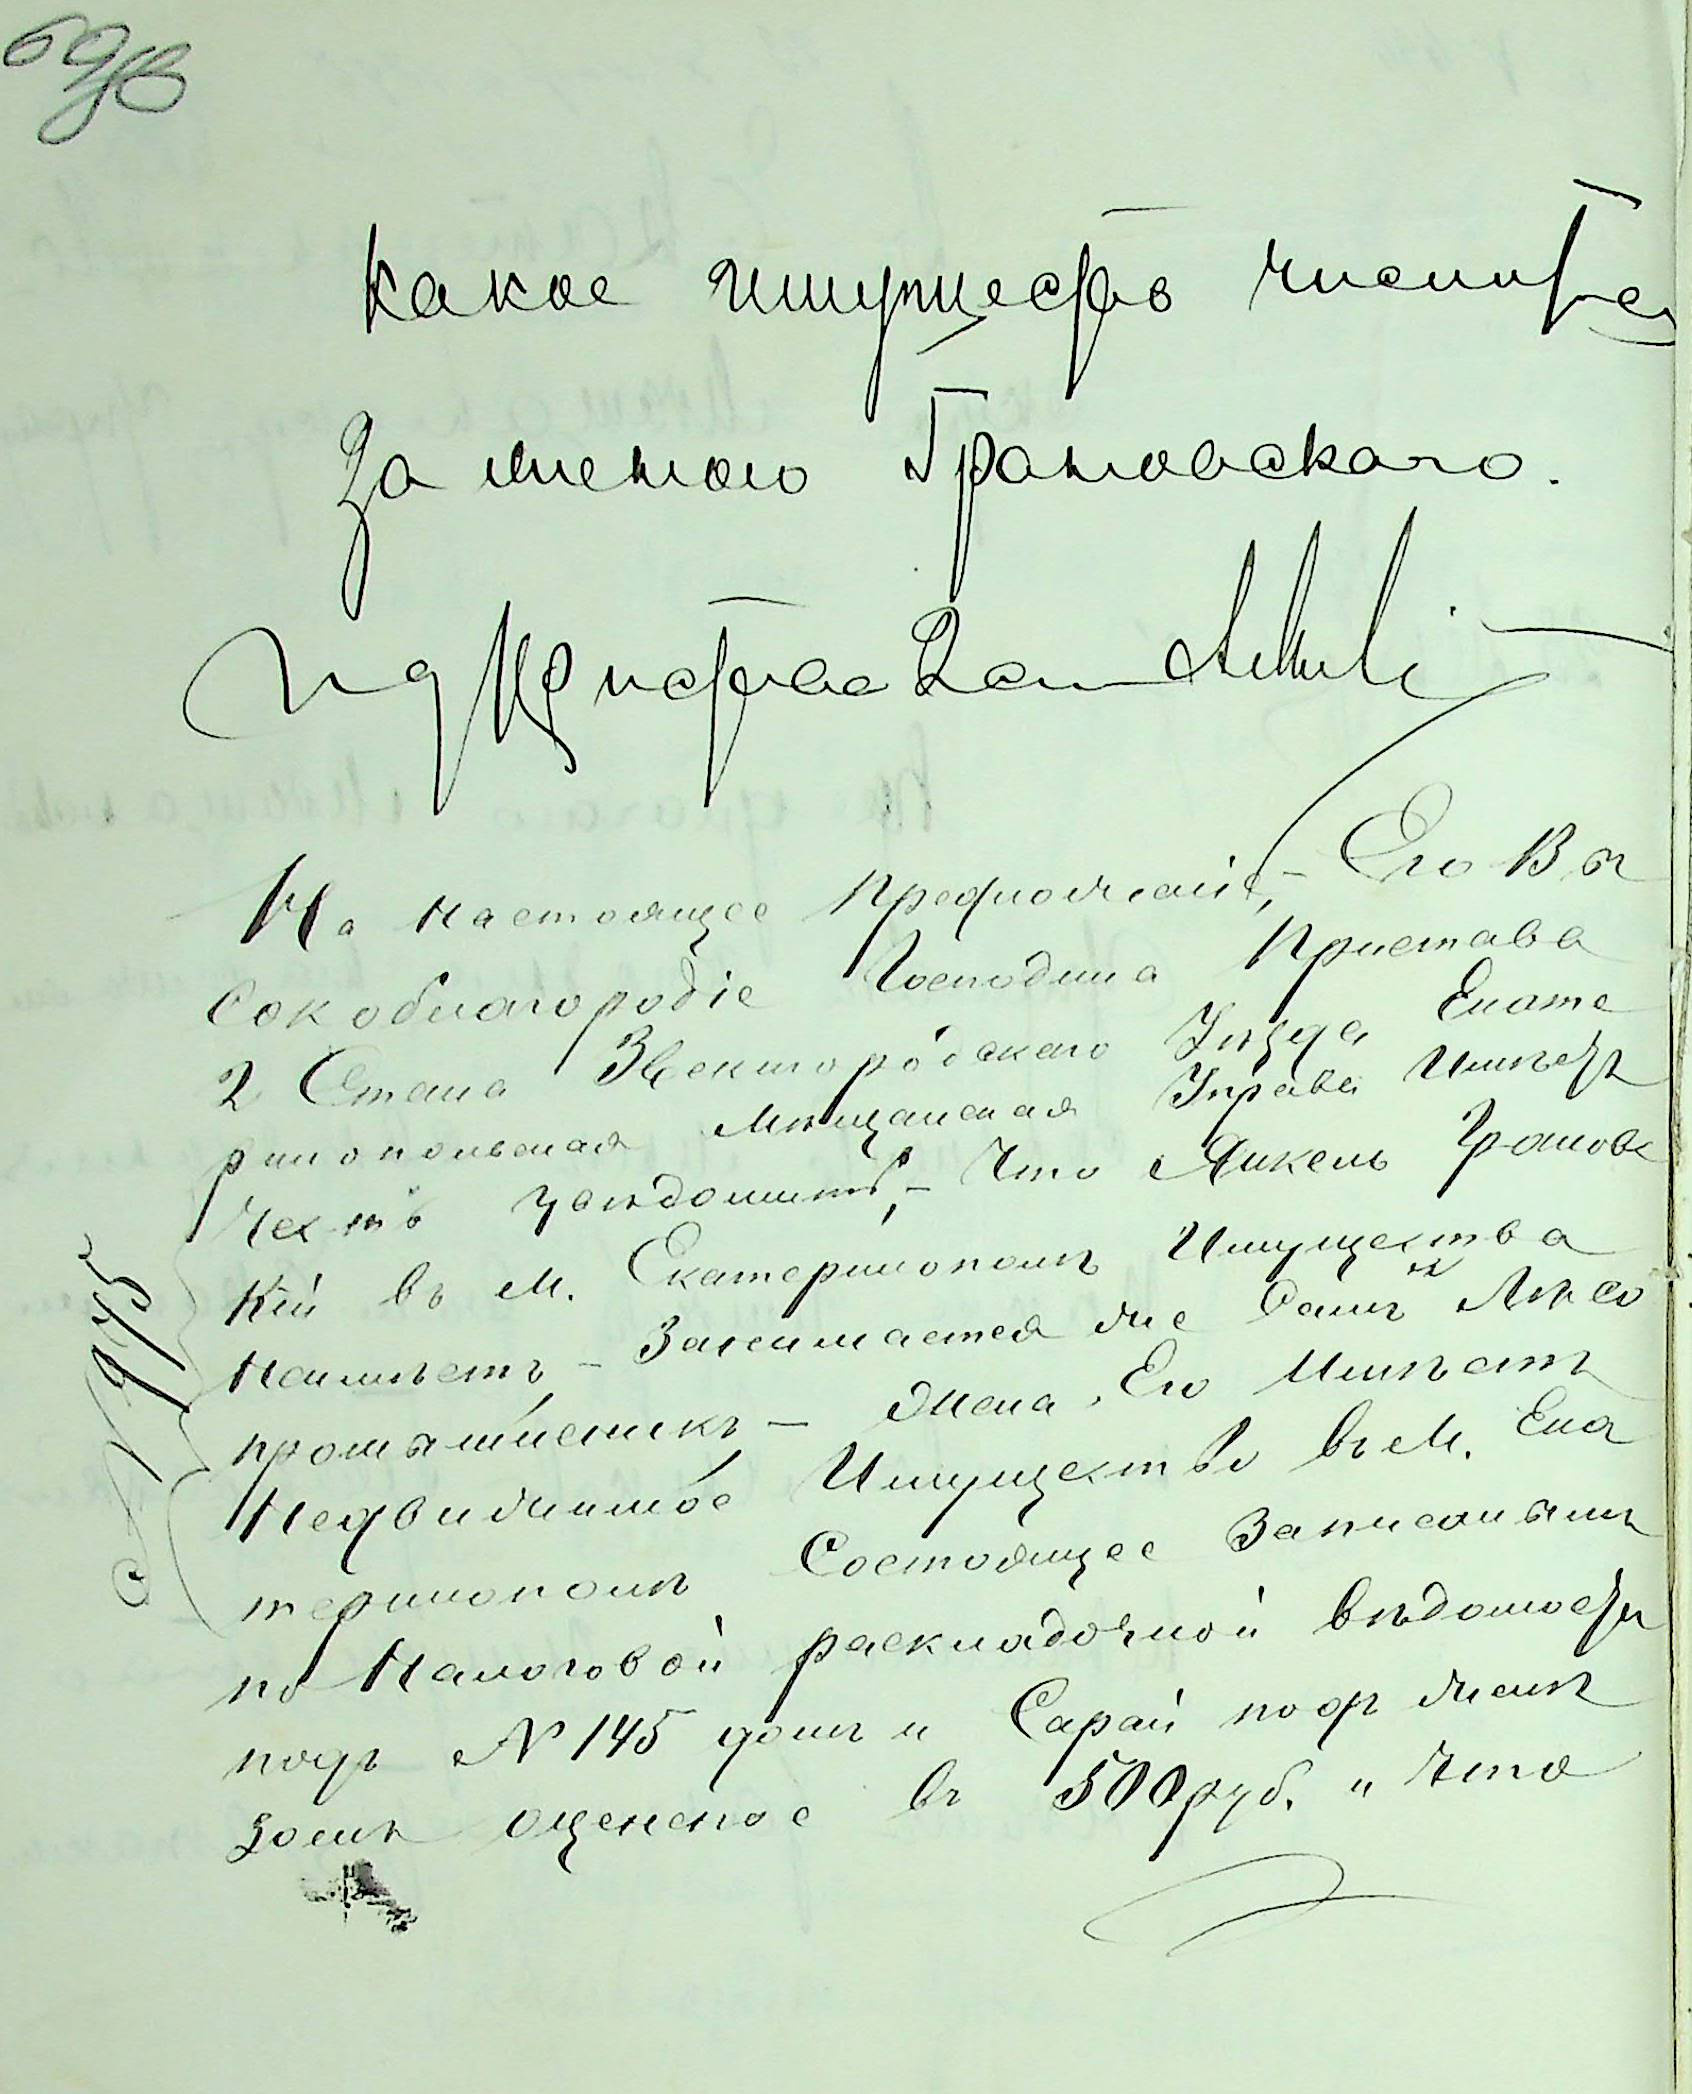 какое имущество числится
за женою Грановскаго.
И д Пристава
На настоящее предложеніе, – Его Вы
сокоблагородіе Господина Пристава
2 Стана Звенигородскаго Уѣзда Екате
ринопольская Мѣщанская Управа Имѣетъ
Честь увѣдомить, – Что Янкель Грановс
кій въ М. Екатеринополѣ Имущества
Неимѣетъ – Занимается же Самъ Лѣсо
промышленикъ – Жена Его Имѣетъ
Недвижимое Имущество въ М. Ека
теринополѣ Состоящее Записанымъ
по Налоговой раскладочной вѣдомости
подъ № 145 домъ и Сарай подъ жесть
оценено въ 500 руб. и Что
№ 975